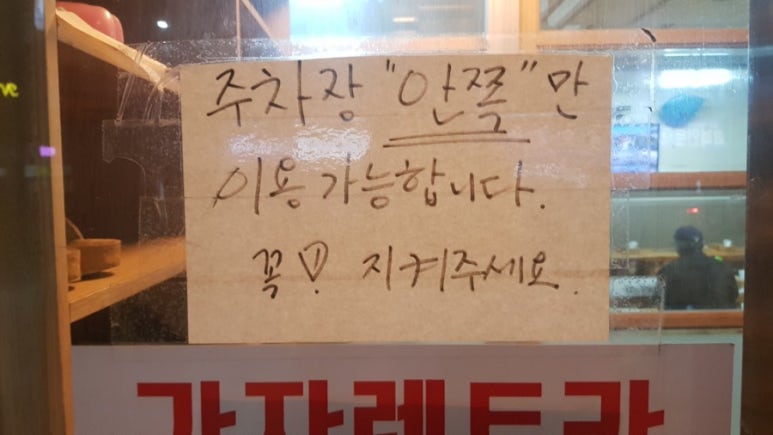 주차장 "안쪽"만
이용 가능합니다.
꼭! 지켜주세요.
가자렌트카